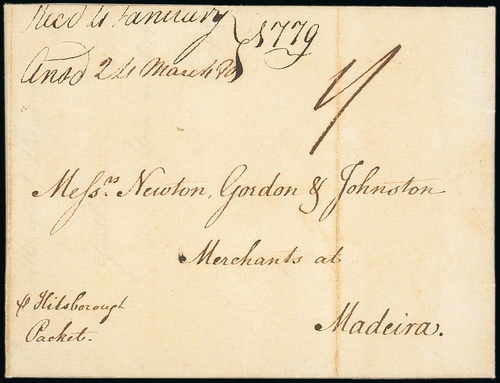 Recd 4 January
1779
Ansd 24 March
Messrs Newton, Gordon & Johnston
Merchants at
Madeira.
⅌ Hilsborough
Packet.